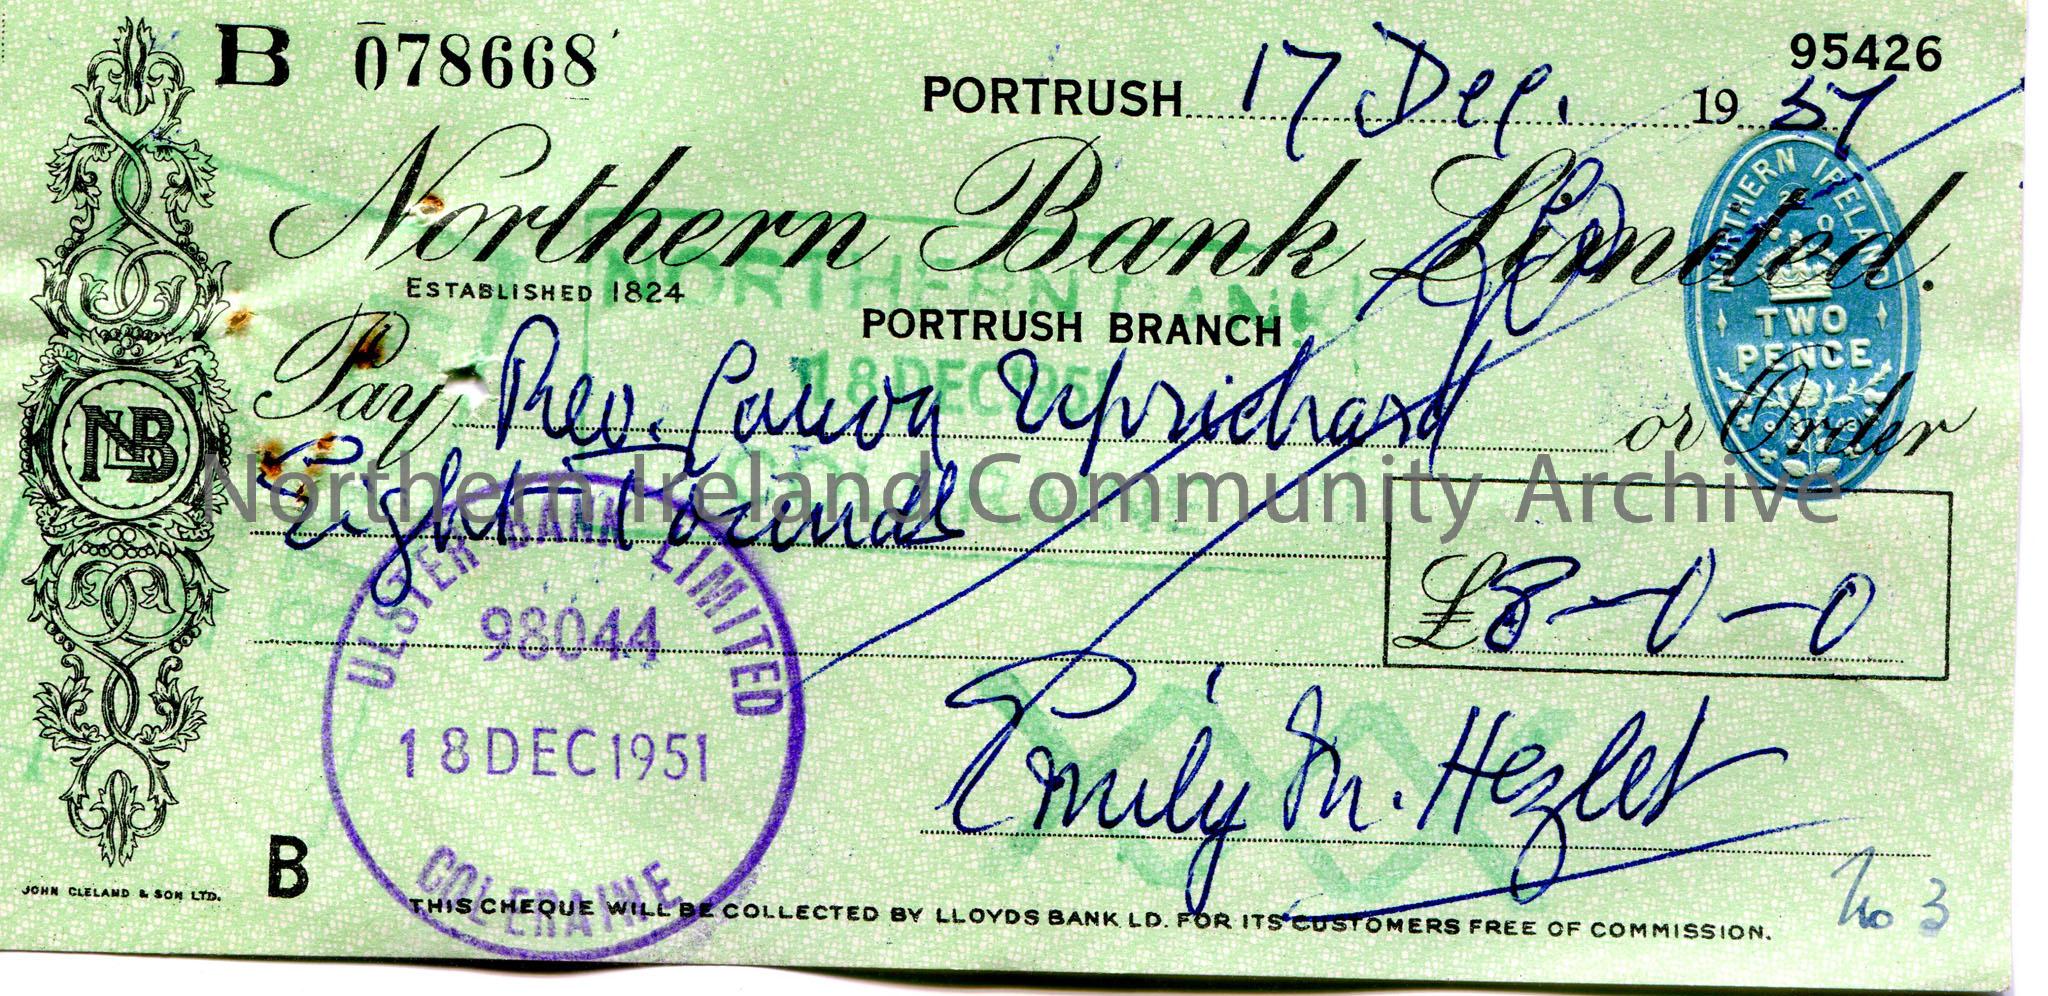 B 078668
95426
PORTRUSH 17 Dec. 19 51
Northern Bank Limited.
ESTABLISHED 1824
PORTRUSH BRANCH
NORTHERN IRELAND
TWO PENCE
NORTHERN BANK
18 DEC 1951
Pay Rev. Canon Uprichard or Order
Eight Pounds
Northern Ireland Community Archive
NBL
£8-0-0
ULSTER BANK LIMITED
98044
18 DEC 1951
COLERAINE
Emily M. Hezlet
B
No 3
JOHN CLELAND & SON LTD.
THIS CHEQUE WILL BE COLLECTED BY LLOYDS BANK LD. FOR ITS CUSTOMERS FREE OF COMMISSION.